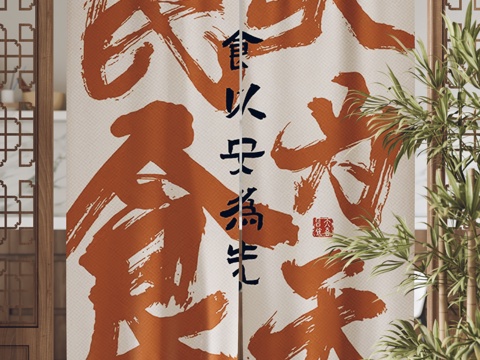 民以
食为
天
食以安為先